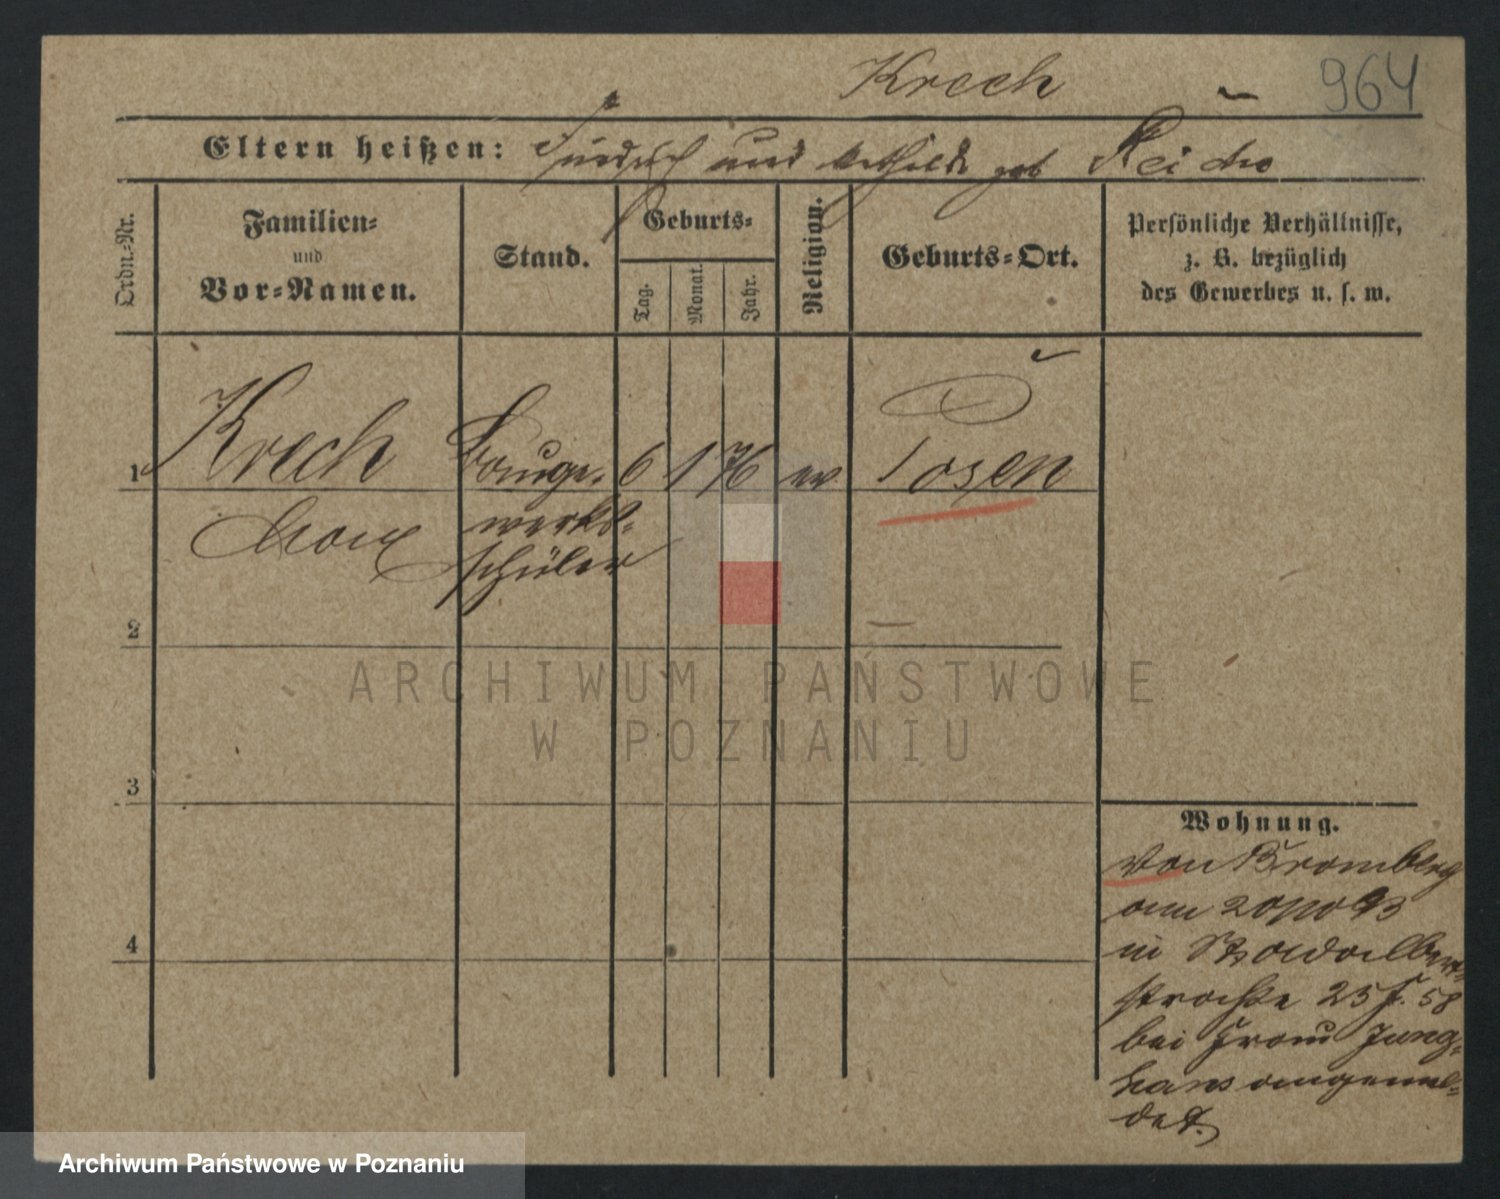 Krech 964
Eltern heißen: Friedrich und Mathilde geb
Ordn.-Nr.
Familien-
und
Vor-Namen.
Stand.
Geburts-
Tag.
Monat.
Jahr.
Religion.
Geburts-Ort.
Persönliche Verhältnisse,
z. B. bezüglich
des Gewerbes u. s. w.
1 Krech Bauge- 6 1 76 ev Posen
Max werks-
schüler
2
3
4
Wohnung.
Von Bromberg
am 20/10 93
in St. Adalbert-
straße 25 J. 58
bei Frau Jung-
hans angemel-
det.
ARCHIWUM PAŃSTWOWE
W POZNANIU
Archiwum Państwowe w Poznaniu